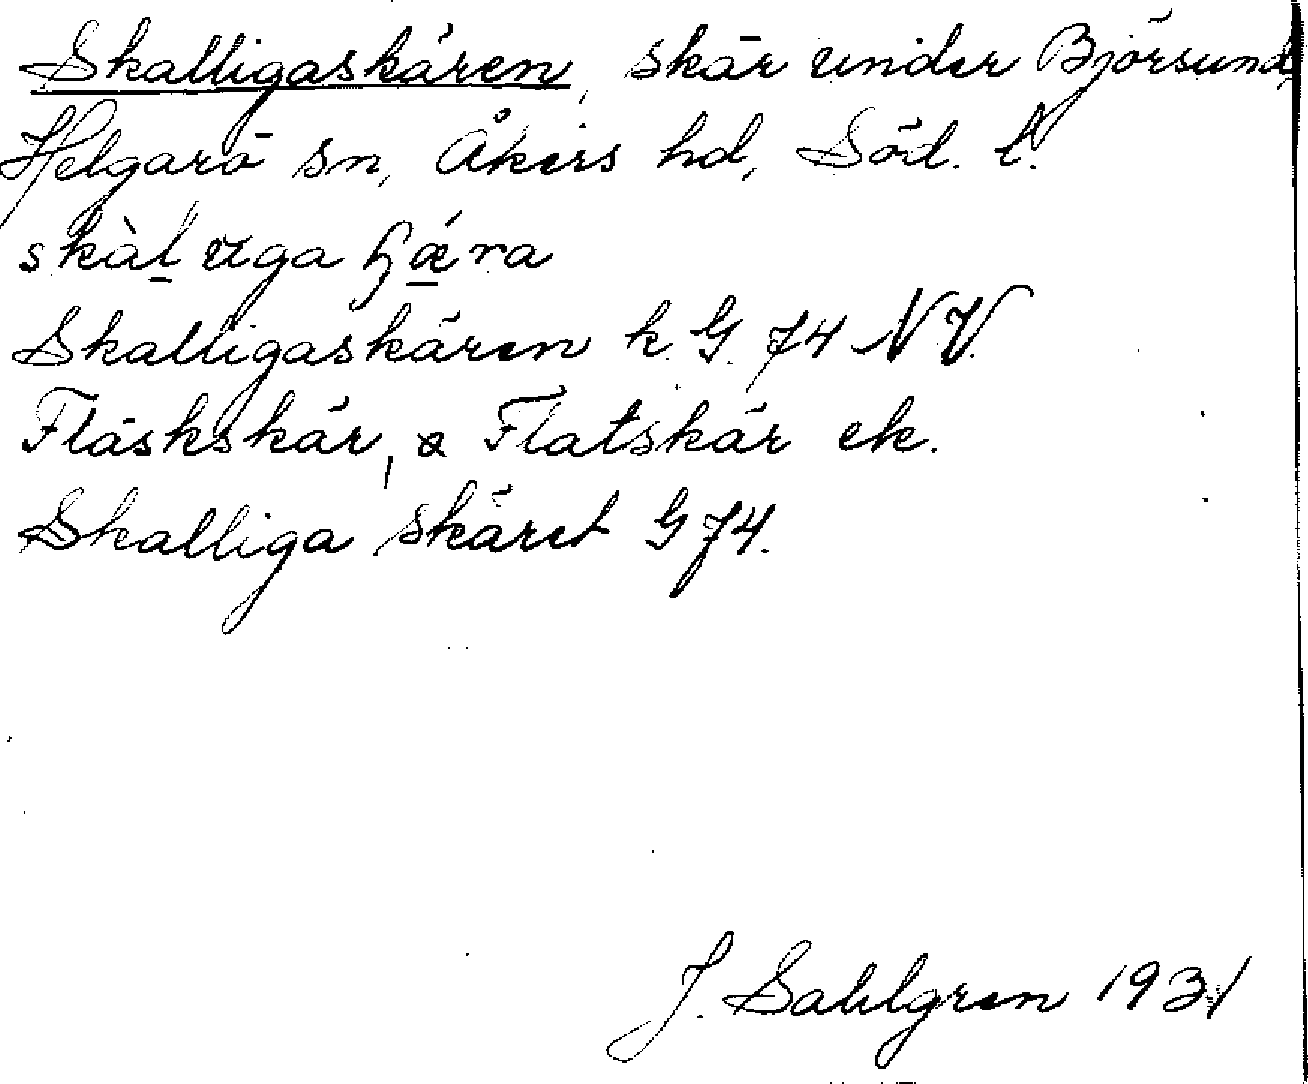 Skalligaskären, skär under Björsund,
Helgarö sn, Åkers hd, Söd. l.
skàl iga ɧǽra
Skalligaskären k. G. 74 NV.
Fläskskär, & Flatskär ek.
Skalliga skäret G 74.
J. Sahlgren 1931